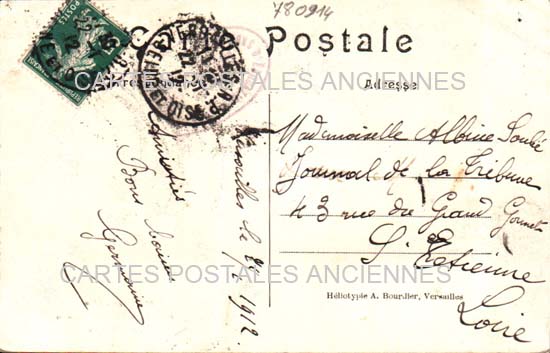 780914
Postale
Adresse
CARTES POSTALES ANCIENNES
Mademoiselle Albine
Journal de la Tribune
43 rue du Grand Gonnet
St Etienne
Loire
Versailles le 1912
Amitiés
Bons
Germaine
CARTES POSTALES ANCIENNES
Héliotypie A. Bourdier, Versailles